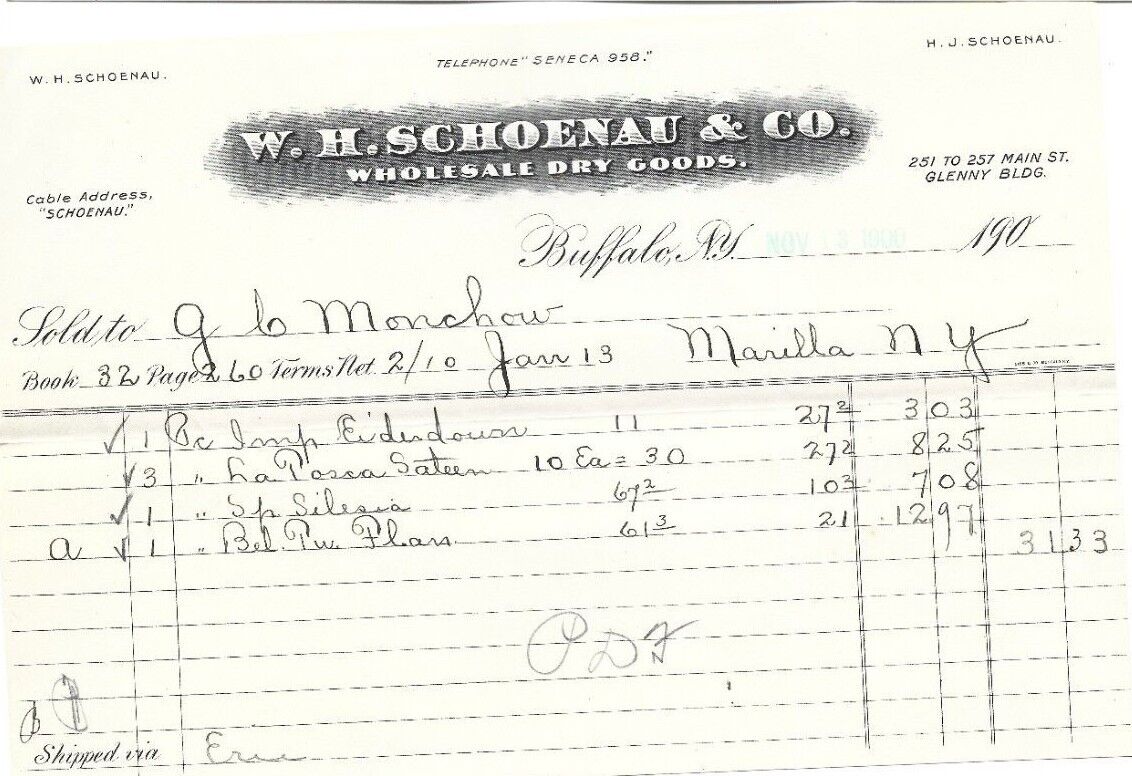 W. H. SCHOENAU.
TELEPHONE "SENECA 958."
H. J. SCHOENAU.
W. H. SCHOENAU & CO.
WHOLESALE DRY GOODS.
Cable Address,
"SCHOENAU."
251 TO 257 MAIN ST.
GLENNY BLDG.
Buffalo, N.Y. NOV 13 1900 190
Sold to G C Monchow
Book 32 Page 260 Terms Net 2/10 Jan 13 Marilla N Y
✓ 1 Pc Imp Eiderdown 11 27 2 3 03
✓ 3 " La Tosca Sateen 10 Ea = 30 27 2 8 25
✓ 1 " Sp Silesia 67 2 10 2 7 08
a ✓ 1 " Bd. Tw. Flan 61 3 21 12 97 31 33
P D F
Shipped via Erie